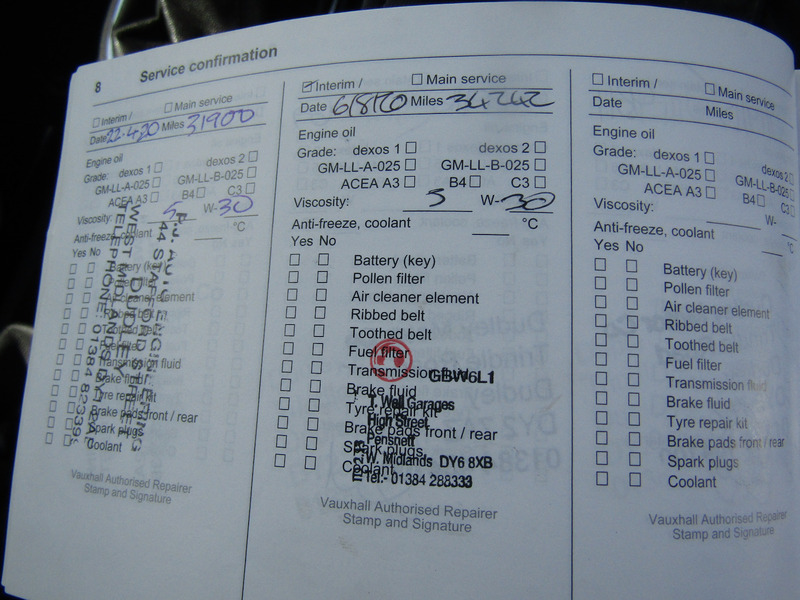 8 Service confirmation
Interim / Main service
Date 22.4.20 Miles 31900
Engine oil
Grade: dexos 1 dexos 2
GM-LL-A-025 GM-LL-B-025
ACEA A3 B4 C3
Viscosity: 5 W-30
Anti-freeze, coolant °C
Yes No
Battery (key)
Pollen filter
Air cleaner element
Ribbed belt
Toothed belt
Fuel filter
Transmission fluid
Brake fluid
Tyre repair kit
Brake pads front / rear
Spark plugs
Coolant
44 STAFFORD STREET
DUDLEY
WEST MIDLANDS
TELEPHONE: 01384
Vauxhall Authorised Repairer
Stamp and Signature
Interim / Main service
Date 6/8/20 Miles 34242
Engine oil
Grade: dexos 1 dexos 2
GM-LL-A-025 GM-LL-B-025
ACEA A3 B4 C3
Viscosity: 5 W-30
Anti-freeze, coolant °C
Yes No
Battery (key)
Pollen filter
Air cleaner element
Ribbed belt
Toothed belt
Fuel filter
Transmission fluid
Brake fluid
Tyre repair kit
Brake pads front / rear
Spark plugs
Coolant
GBW6L1
T. Wall Garages
High Street
Pensnett
W. Midlands DY6 8XB
Tel:- 01384 288333
Vauxhall Authorised Repairer
Stamp and Signature
Interim / Main service
Date Miles
Engine oil
Grade: dexos 1 dexos 2
GM-LL-A-025 GM-LL-B-025
ACEA A3 B4 C3
Viscosity: W-
Anti-freeze, coolant °C
Yes No
Battery (key)
Pollen filter
Air cleaner element
Ribbed belt
Toothed belt
Fuel filter
Transmission fluid
Brake fluid
Tyre repair kit
Brake pads front / rear
Spark plugs
Coolant
Vauxhall Authorised Repairer
Stamp and Signature